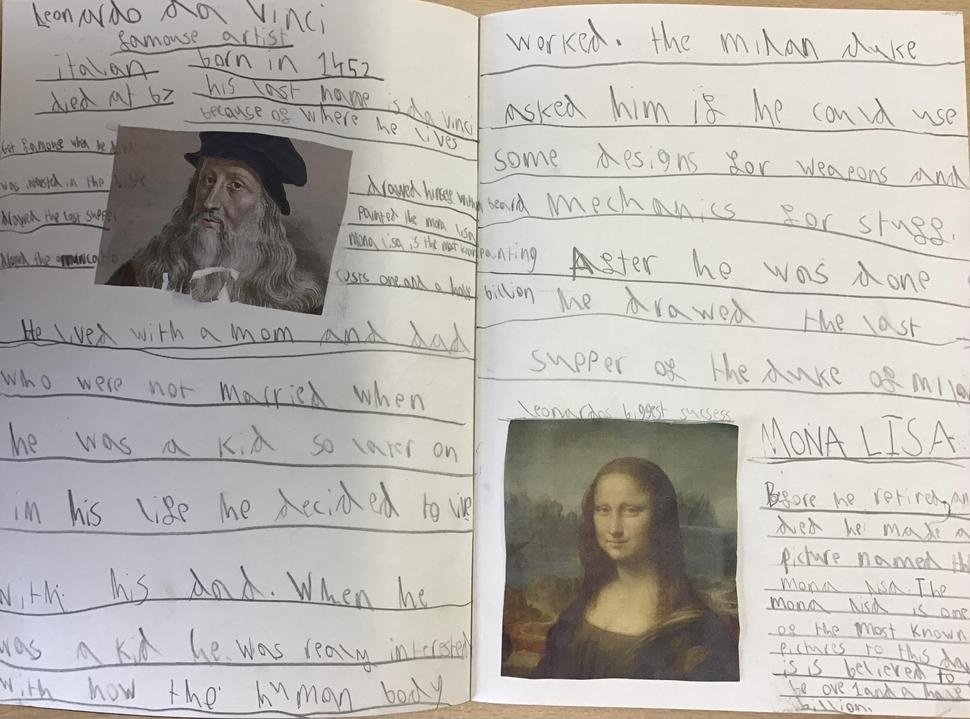 Leonardo da Vinci
famouse artist
italian born in 1452
died at 67 his last name is da vinci
because of where he lives
got famous when he
was intrested in the
drawed the last supper
drawed himself with beard
painted the mona lisa
mona lisa is the most known painting
costs one and a half billion
He lived with a mom and dad
who were not married when
he was a kid so later on
in his life he decided to live
with his dad. When he
was a kid he was realy interested
with how the human body
worked. the milan duke
asked him if he could use
some designs for weapons and
mechanics for stuff.
After he was done
he drawed the last
supper of the duke of
leonardos biggest sucsess
MONA LISA
Before he retired
died he made a
picture named
mona lisa. The
mona lisa is one
of the most known
pictures to this day
is is believed to
be ove 1 and a half
billion.